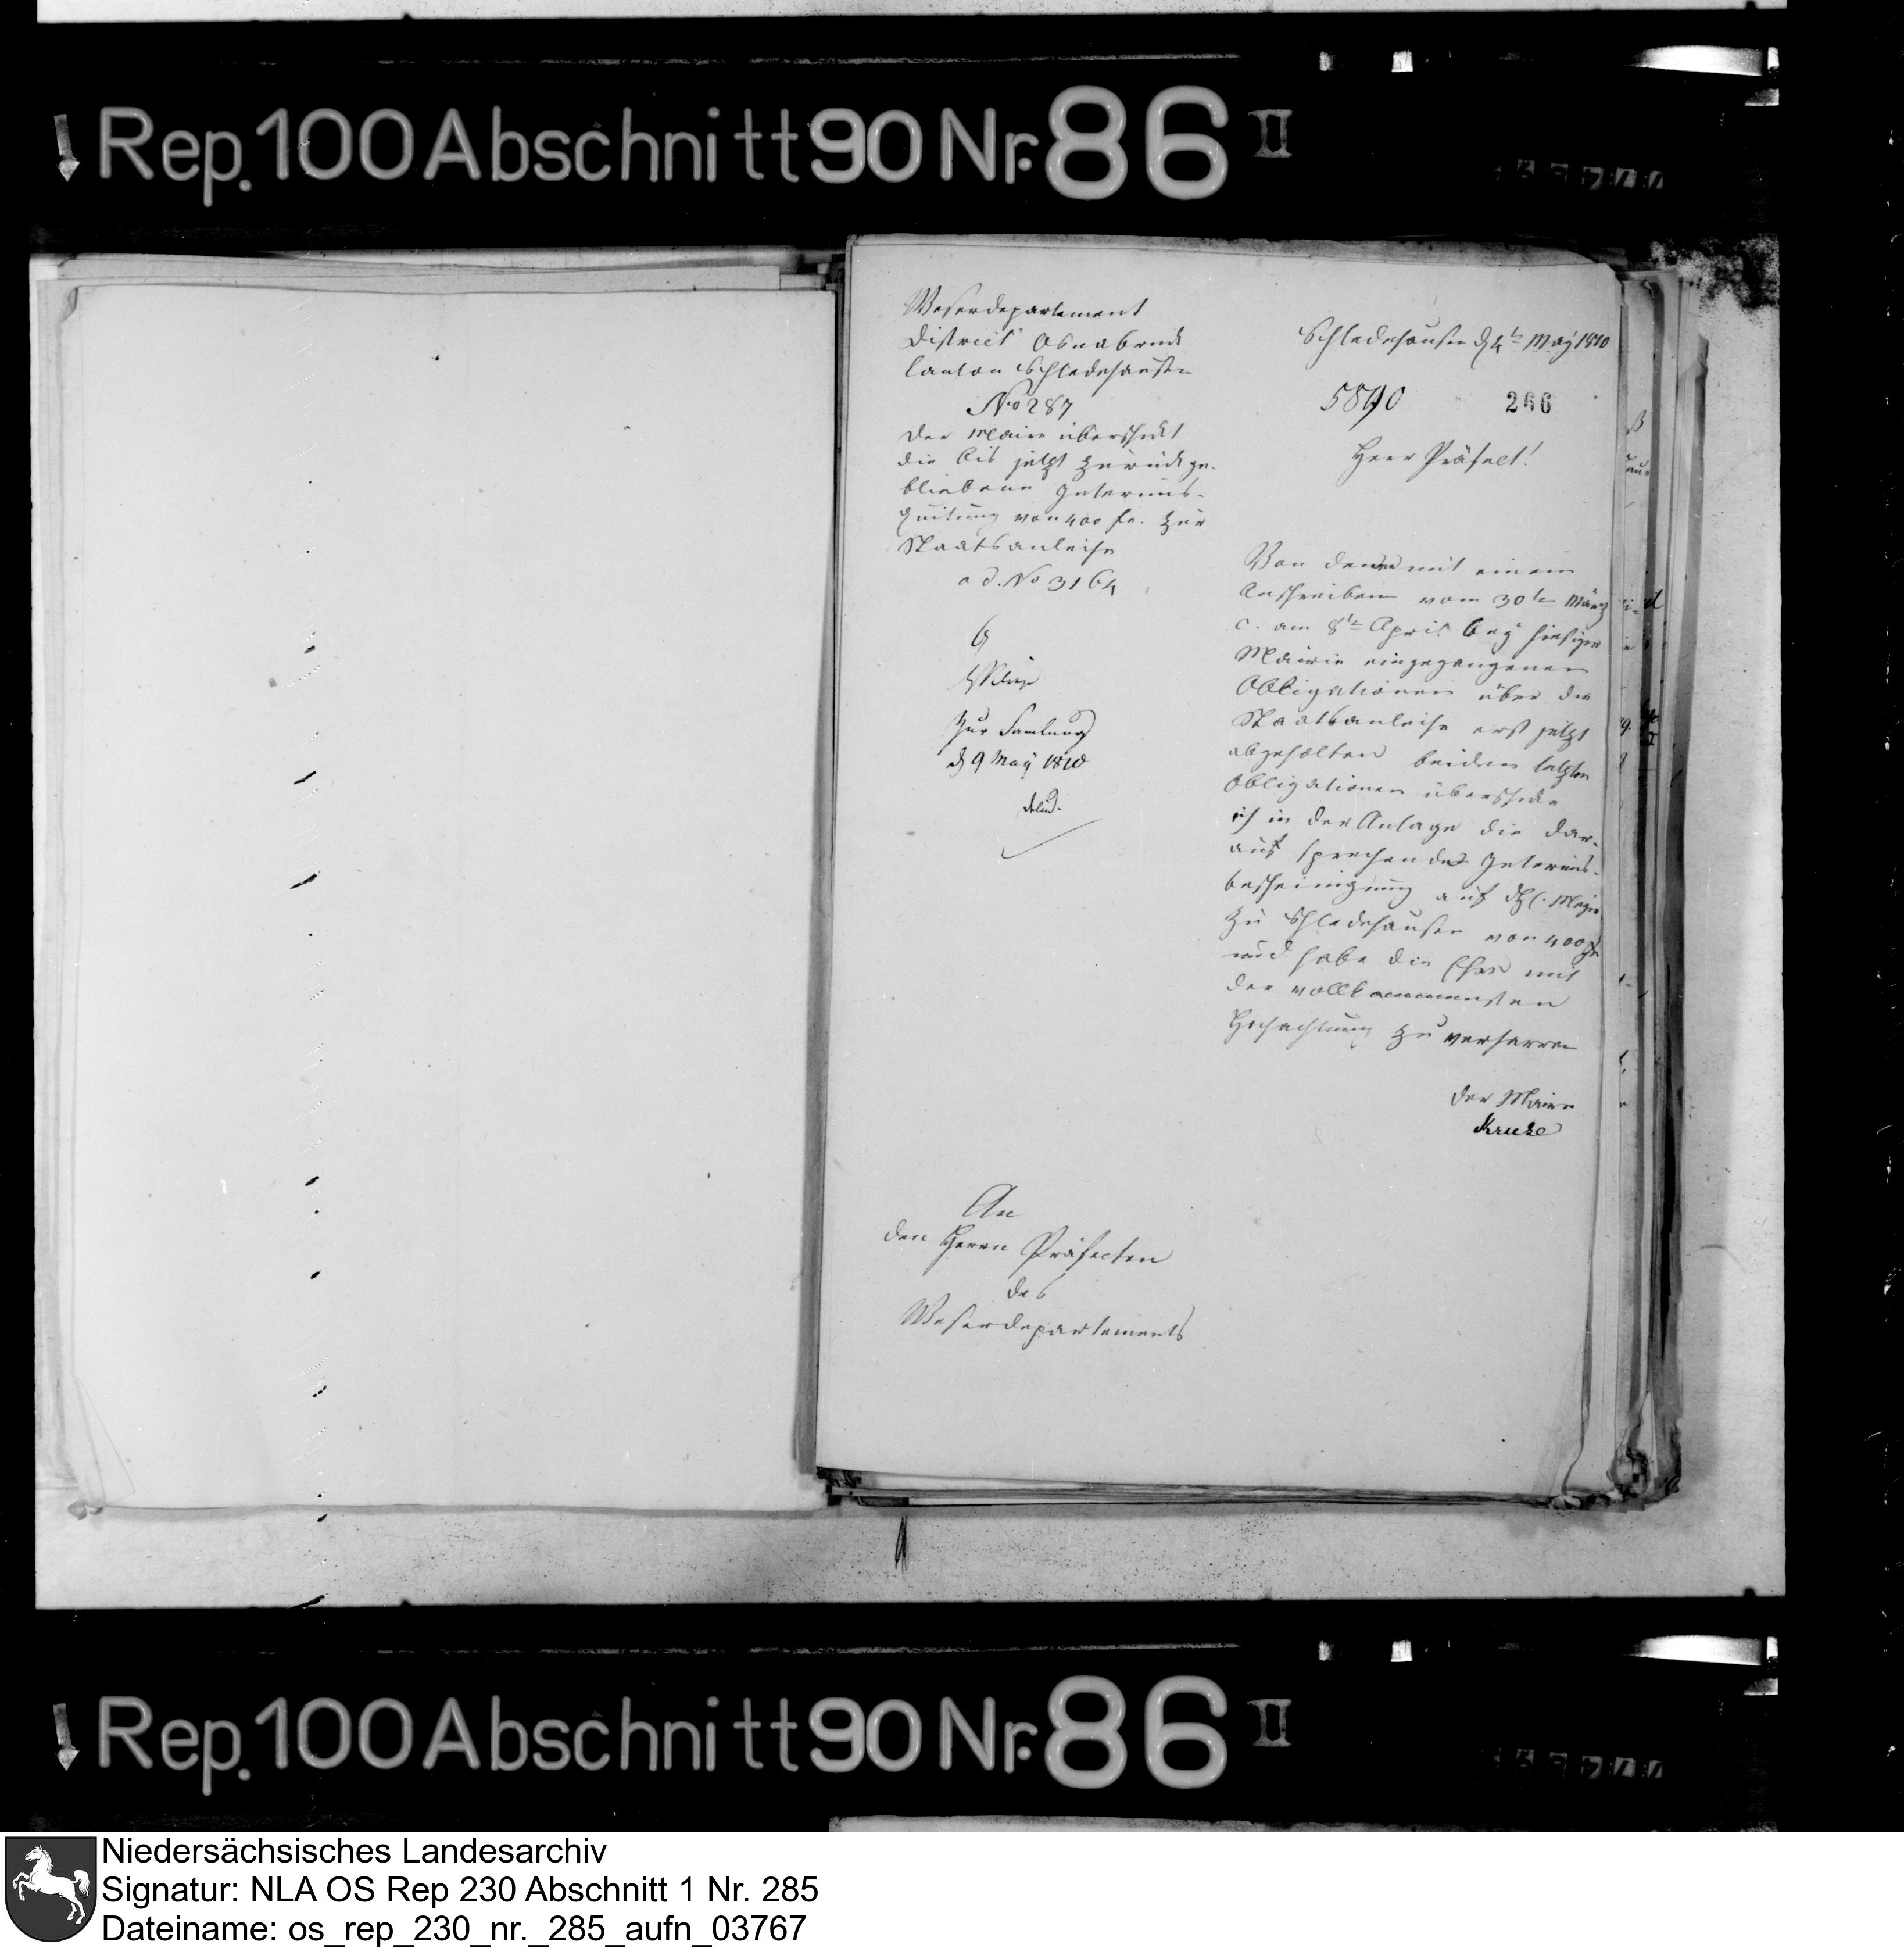 Rep. 100 Abschnitt 90 Nr. 86 II
Weserdepartement
District Osnabrück
Canton Schledehausen
No 287
Der Maire überschickt
die bis jetzt zurückge-
bliebene Interims-
Quitung von 400 fr. zur
Staatsanleihe
ad. No 3164
Zur Samlung
d 9 May 1810
Schledehausen d 4ten May 1810
5890
266
Herr Präfect!
Von denen mit einem
Anschreiben vom 30ten März
c. am 8ten April bey hiesiger
Mairie eingegangenen
Obligationen über die
Staatsanleihe erst jetzt
abgeholten beiden letzten
Obligationen überschicke
ich in der Anlage die dar-
auf sprechende Interims-
bescheinigung auf
zu Schledehausen von 400 fr
und habe die Ehre mit
der vollkommensten
Hochachtung zu verharren
Der Maire
Kruse
An
den Herrn Präfecten
des
Weserdepartements
Rep. 100 Abschnitt 90 Nr. 86 II
Niedersächsisches Landesarchiv
Signatur: NLA OS Rep 230 Abschnitt 1 Nr. 285
Dateiname: os_rep_230_nr._285_aufn_03767